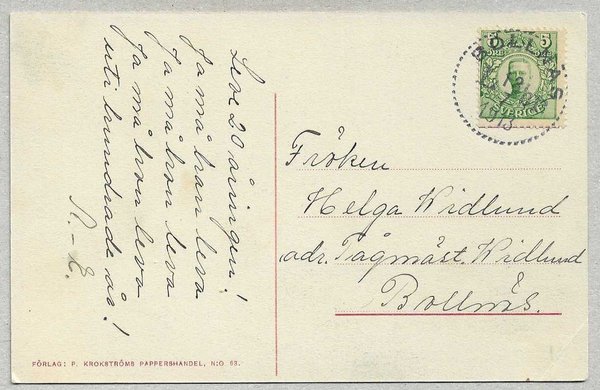 Leve 20 åringen!
Ja må hon leva
Ja må hon leva
Ja må hon leva
uti hundrade år!
N-E.
BOLLNÄS
1913
5
SVERIGE
Fröken
Helga Widlund
adr. Tågmäst. Widlund
Bollnäs.
FÖRLAG: P. KROKSTRÖMS PAPPERSHANDEL, N:O 63.